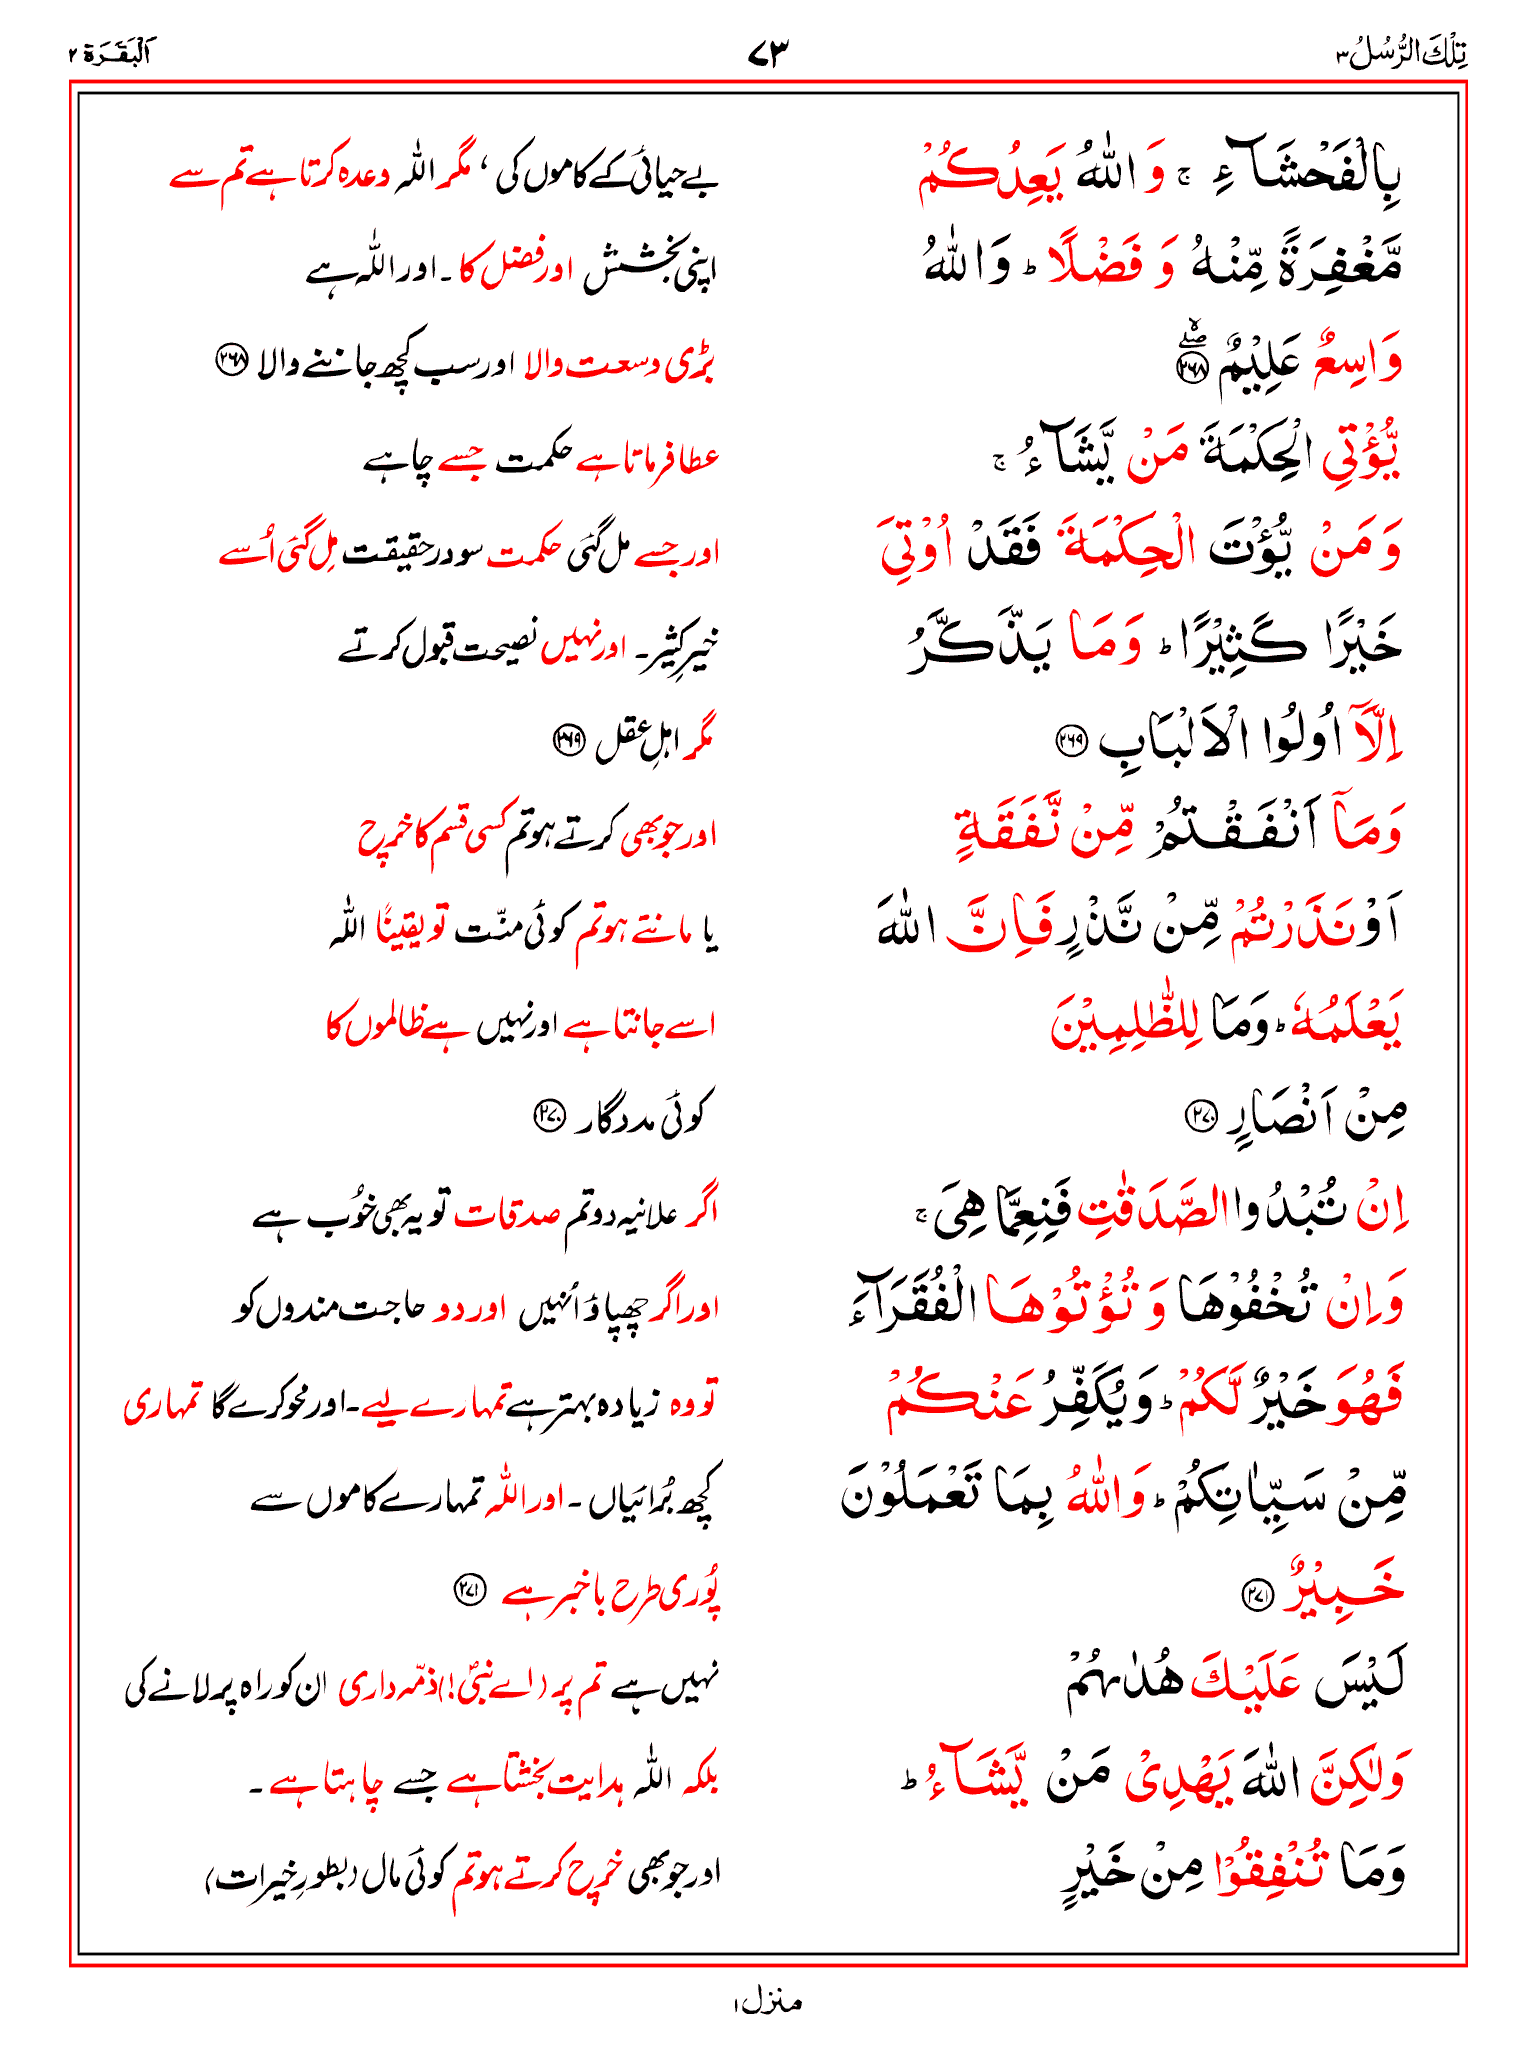 تِلْكَ الرُّسُلُ ٣ ٧٣ اَلْبَقَرَة ٢
بِالْفَحْشَآءِ ۚ وَ اللّٰهُ يَعِدُكُمْ بے حیائی کے کاموں کی ، مگر اللہ وعدہ کرتا ہے تم سے
مَّغْفِرَةً مِّنْهُ وَ فَضْلًا ؕ وَ اللّٰهُ اپنی بخشش اور فضل کا ۔ اور اللہ ہے
وَاسِعٌ عَلِيْمٌ ۖۙ ﴿٢٦٨﴾ بڑی وسعت والا اور سب کچھ جاننے والا ﴿٢٦٨﴾
يُّؤْتِي الْحِكْمَةَ مَنْ يَّشَآءُ ۚ عطا فرماتا ہے حکمت جسے چاہے
وَ مَنْ يُّؤْتَ الْحِكْمَةَ فَقَدْ اُوْتِيَ اور جسے مل گئی حکمت سو درحقیقت مِل گئی اُسے
خَيْرًا كَثِيْرًا ؕ وَ مَا يَذَّكَّرُ خیرِ کثیر ۔ اور نہیں نصیحت قبول کرتے
اِلَّاۤ اُولُوا الْاَلْبَابِ ﴿٢٦٩﴾ مگر اہلِ عقل ﴿٢٦٩﴾
وَ مَاۤ اَنْفَقْتُمْ مِّنْ نَّفَقَةٍ اور جو بھی کرتے ہو تم کسی قسم کا خرچ
اَوْ نَذَرْتُمْ مِّنْ نَّذْرٍ فَاِنَّ اللّٰهَ یا مانتے ہو تم کوئی منّت تو یقینًا اللہ
يَعْلَمُهٗ ؕ وَ مَا لِلظّٰلِمِيْنَ اسے جانتا ہے اور نہیں ہے ظالموں کا
مِنْ اَنْصَارٍ ﴿٢٧٠﴾ کوئی مددگار ﴿٢٧٠﴾
اِنْ تُبْدُوا الصَّدَقٰتِ فَنِعِمَّا هِيَ ۚ اگر علانیہ دو تم صدقات تو یہ بھی خُوب ہے
وَ اِنْ تُخْفُوْهَا وَ تُؤْتُوْهَا الْفُقَرَآءَ اور اگر چھپاؤ اُنہیں اور دو حاجت مندوں کو
فَهُوَ خَيْرٌ لَّكُمْ ؕ وَ يُكَفِّرُ عَنْكُمْ تو وہ زیادہ بہتر ہے تمہارے لیے ۔ اور محو کرے گا تمہاری
مِّنْ سَيِّاٰتِكُمْ ؕ وَ اللّٰهُ بِمَا تَعْمَلُوْنَ کچھ بُرائیاں ۔ اور اللہ تمہارے کاموں سے
خَبِيْرٌ ﴿٢٧١﴾ پُوری طرح باخبر ہے ﴿٢٧١﴾
لَيْسَ عَلَيْكَ هُدٰىهُمْ نہیں ہے تم پر (اے نبیؐ!) ذمّہ داری ان کو راہ پر لانے کی
وَلٰكِنَّ اللّٰهَ يَهْدِيْ مَنْ يَّشَآءُ ؕ بلکہ اللہ ہدایت بخشتا ہے جسے چاہتا ہے ۔
وَ مَا تُنْفِقُوْا مِنْ خَيْرٍ اور جو بھی خرچ کرتے ہو تم کوئی مال (بطورِ خیرات)
منزل ١